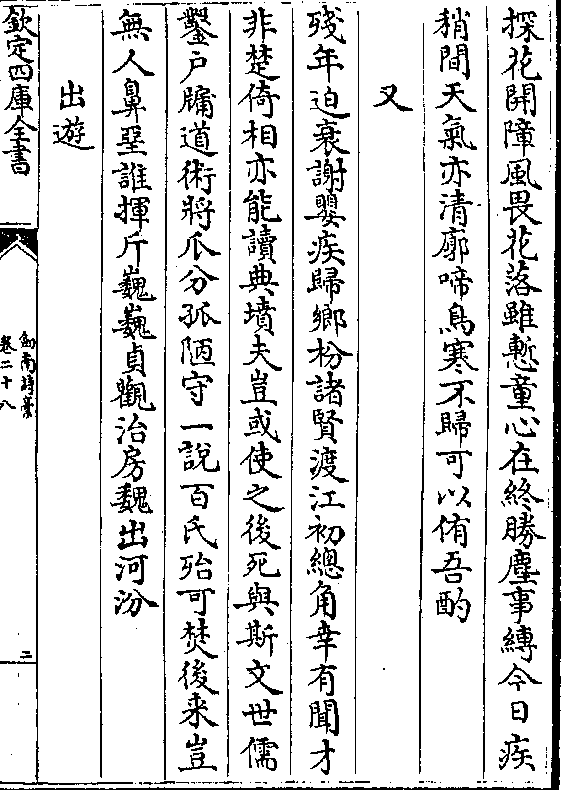 探花開障風畏花落雖慙童心在終勝塵事縛今日疾
稍間天氣亦清廓啼鳥寒不歸可以侑吾酌
又
殘年迫衰謝嬰疾歸鄉枌諸賢渡江初總角幸有聞才
非楚倚相亦能讀典墳夫豈或使之後死與斯文世儒
鑿户牖道術將瓜分孤陋守一說百氏殆可焚後来豈
無人鼻堊誰揮斤巍巍貞觀治房魏出河汾
出遊
欽定四庫全書
劍南詩稾
卷二十八
二